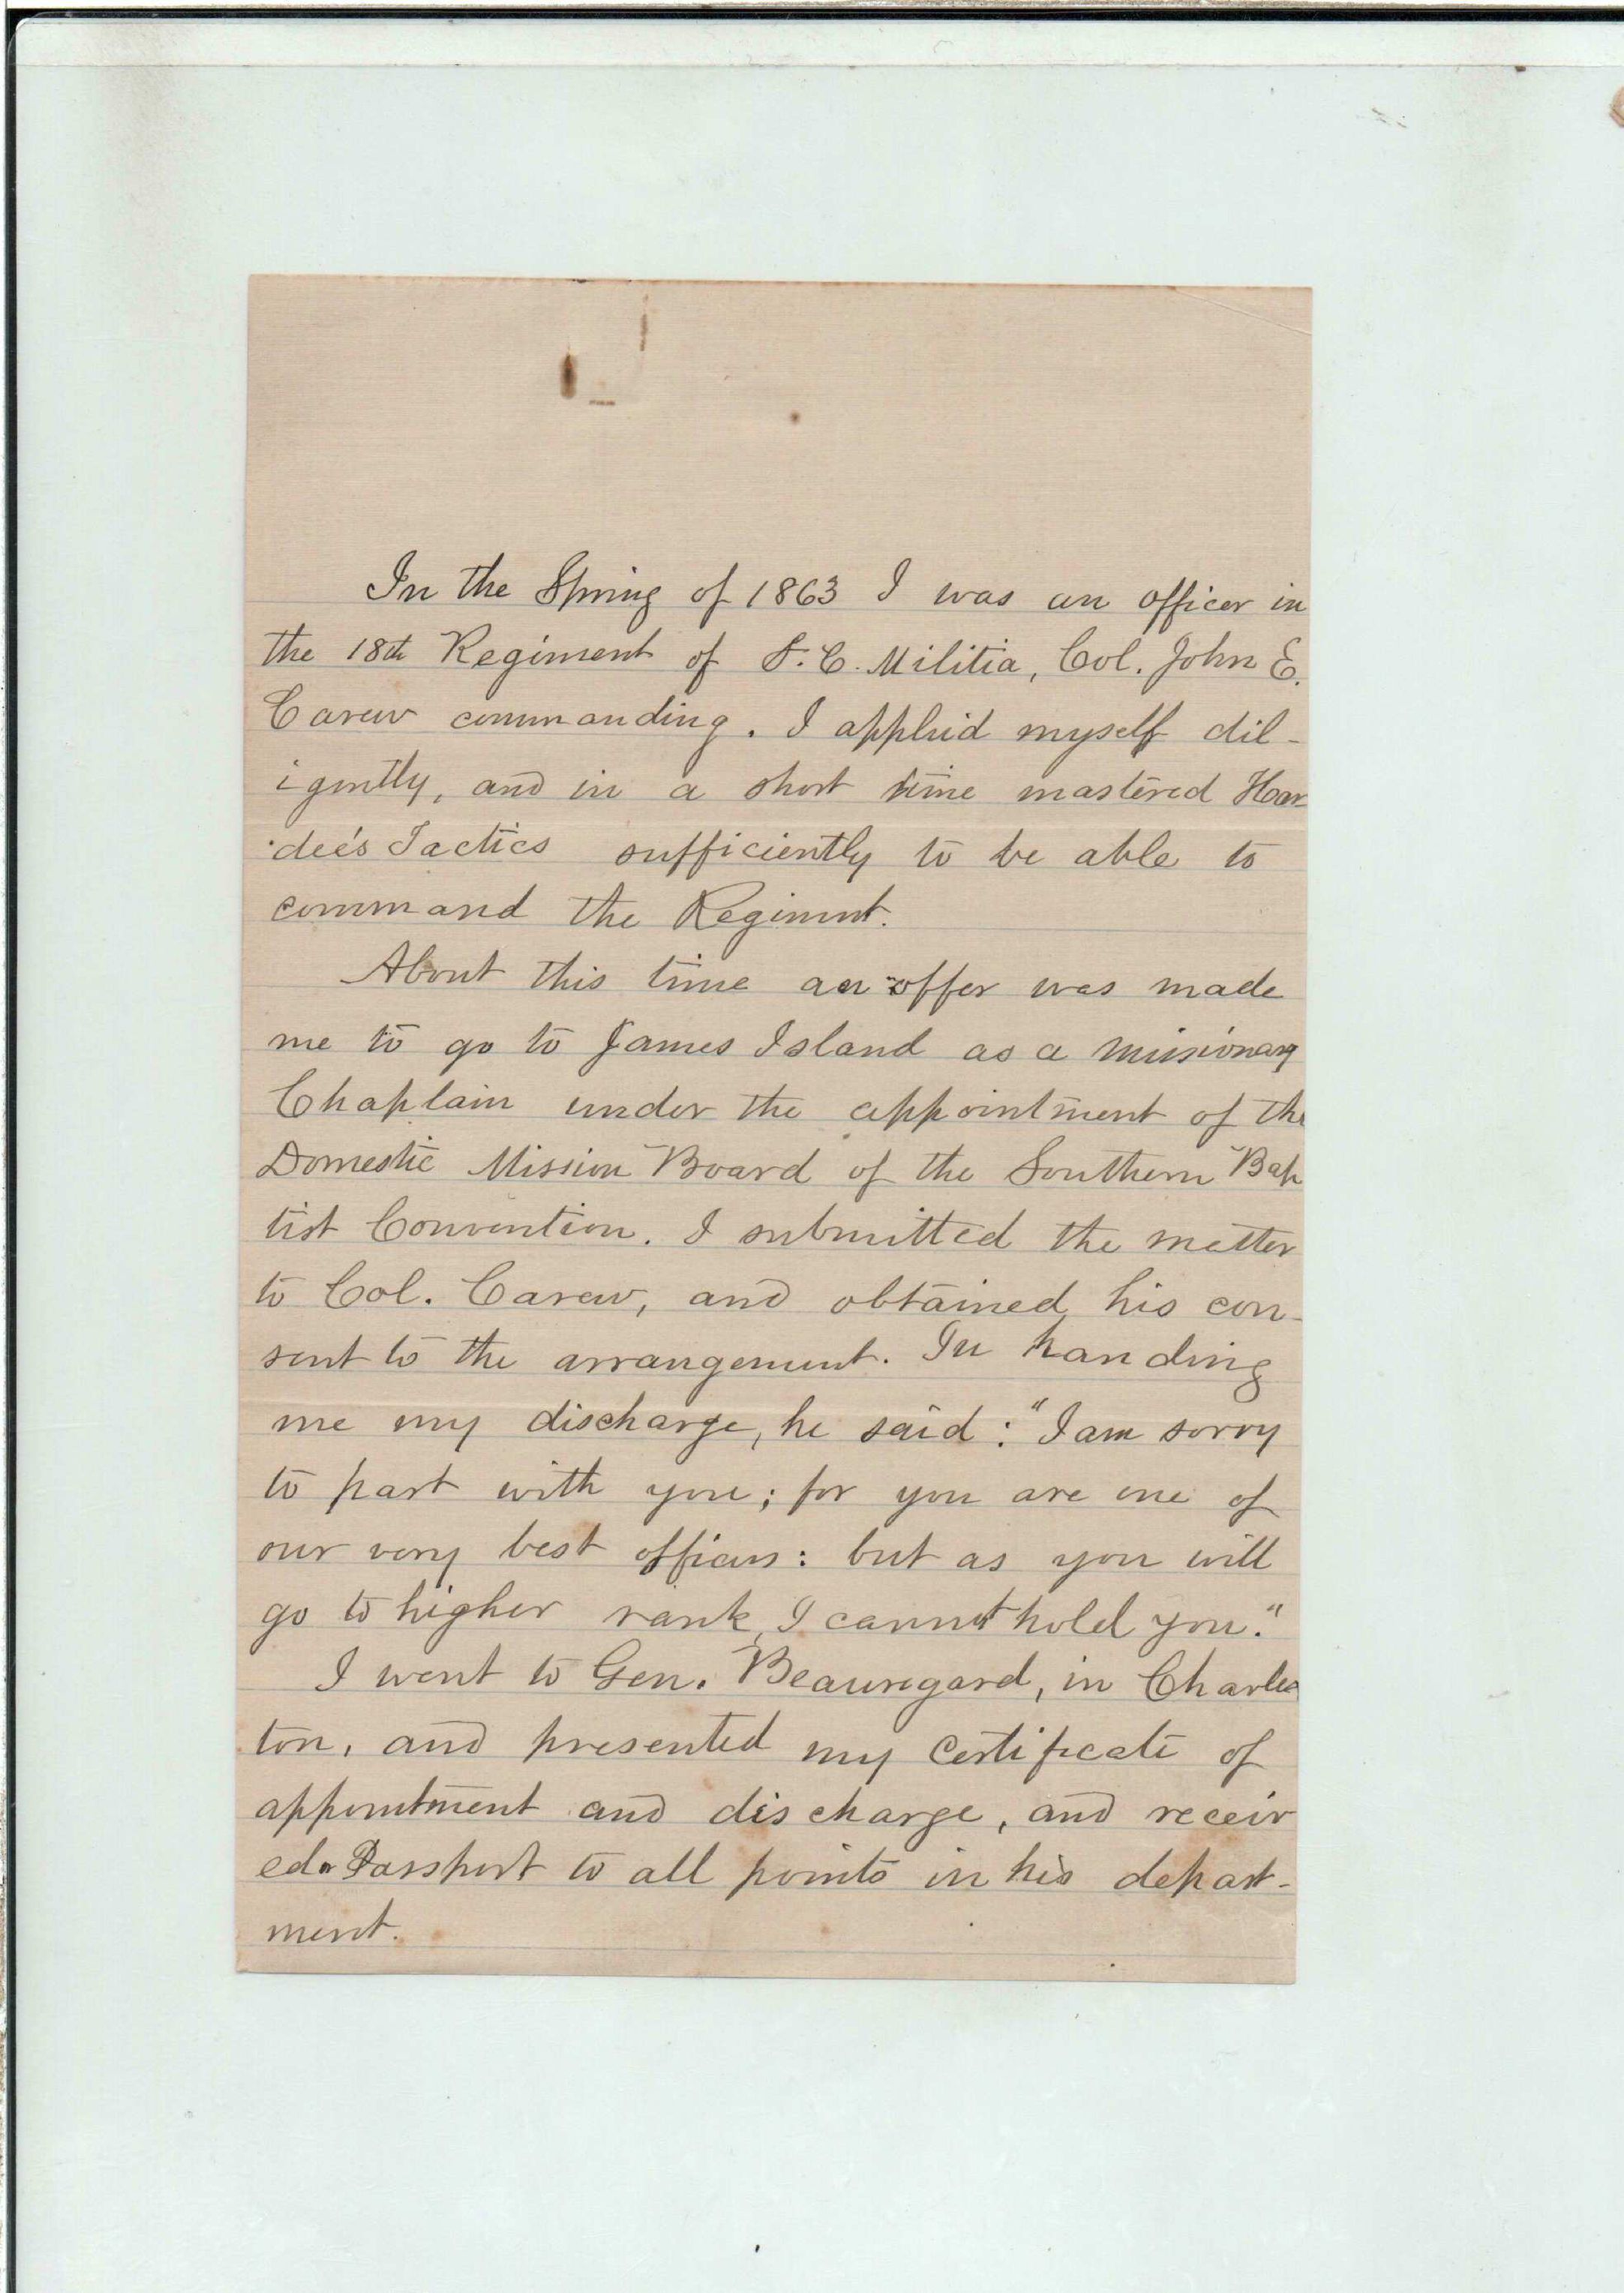 In the Spring of 1863 I was an officer in
the 18th Regiment of S.C. Militia, Col. John E.
Carew commanding. I applied myself dil-
igently, and in a short time mastered Har
dee's Tactics sufficiently to be able to
command the Regiment.
About this time an offer was made
me to go to James Island as a missionary
Chaplain under the appointment of the
Domestic Mission Board of the Southern Bap
tist Convention. I submitted the matter
to Col. Carew, and obtained his con-
sent to the arrangement. In handing
me my discharge, he said: "I am sorry
to part with you; for you are one of
our very best officers: but as you will
go to higher rank, I cannot hold you."
I went to Gen. Beauregard, in Charles
ton, and presented my certificate of
appointment and discharge, and receiv
ed a Passport to all points in his depart-
ment.